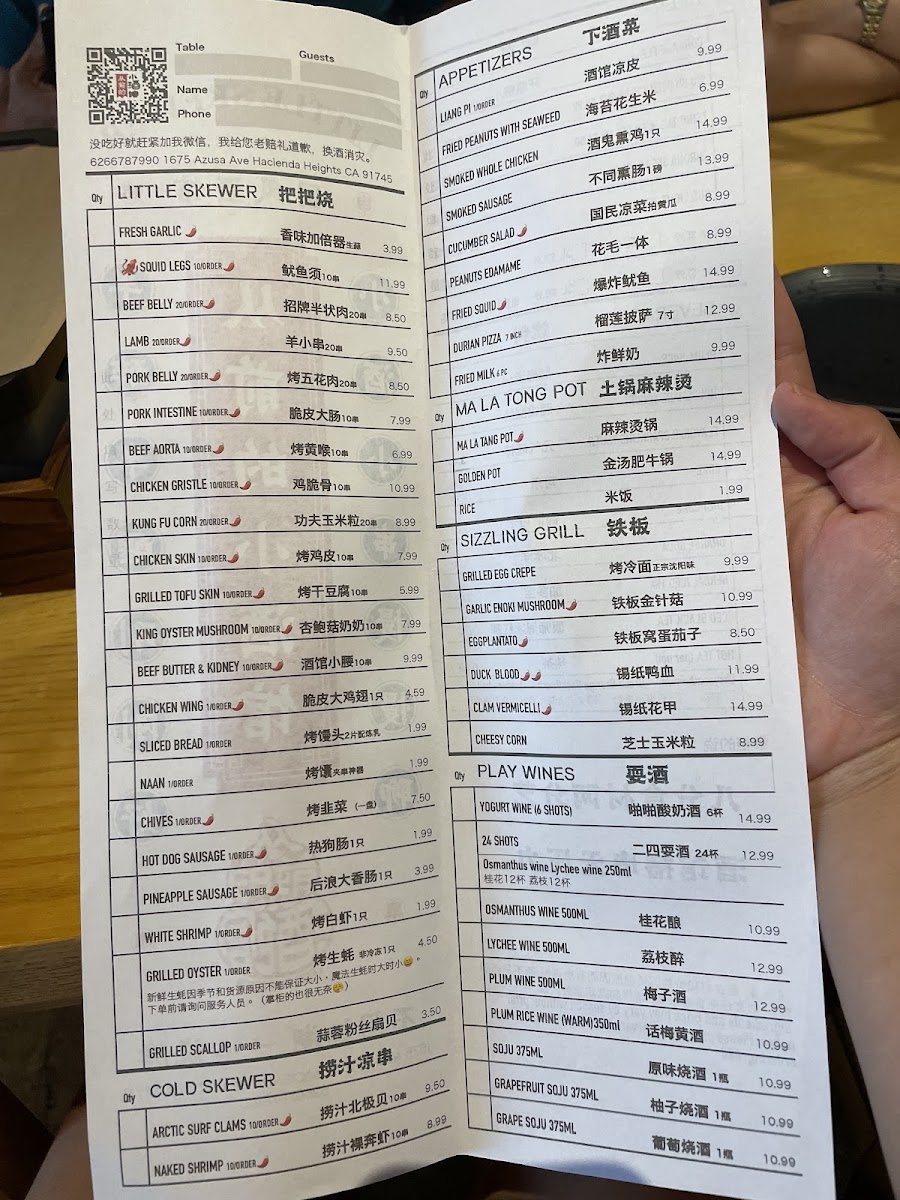 Table
Guests
Name
Phone
没吃好就赶紧加我微信，我给您老赔礼道歉，换酒消灾。
6266787990 1675 Azusa Ave Hacienda Heights CA 91745
Qty LITTLE SKEWER 把把烧
FRESH GARLIC 香味加倍器生蒜 3.99
SQUID LEGS 10/ORDER 鱿鱼须10串 11.99
BEEF BELLY 20/ORDER 招牌半状肉20串 8.50
LAMB 20/ORDER 羊小串20串 9.50
PORK BELLY 20/ORDER 烤五花肉20串 8.50
PORK INTESTINE 10/ORDER 脆皮大肠10串 7.99
BEEF AORTA 10/ORDER 烤黄喉10串 6.99
CHICKEN GRISTLE 10/ORDER 鸡脆骨10串 10.99
KUNG FU CORN 20/ORDER 功夫玉米粒20串 8.99
CHICKEN SKIN 10/ORDER 烤鸡皮10串 7.99
GRILLED TOFU SKIN 10/ORDER 烤干豆腐10串 5.99
KING OYSTER MUSHROOM 10/ORDER 杏鲍菇奶奶10串 7.99
BEEF BUTTER & KIDNEY 10/ORDER 酒馆小腰10串 9.99
CHICKEN WING 1/ORDER 脆皮大鸡翅1只 4.59
SLICED BREAD 1/ORDER 烤馒头2片配炼乳 1.99
NAAN 1/ORDER 烤馕夹串神器 1.99
CHIVES 1/ORDER 烤韭菜（一盘） 7.50
HOT DOG SAUSAGE 1/ORDER 热狗肠1只 1.99
PINEAPPLE SAUSAGE 1/ORDER 后浪大香肠1只 3.99
WHITE SHRIMP 1/ORDER 烤白虾1只 1.99
GRILLED OYSTER 1/ORDER 烤生蚝 非冷冻1只 4.50
新鲜生蚝因季节和货源原因不能保证大小，魔法生蚝时大时小😄。
下单前请询问服务人员。（掌柜的也很无奈😚）
GRILLED SCALLOP 1/ORDER 蒜蓉粉丝扇贝 3.50
Qty COLD SKEWER 捞汁凉串
ARCTIC SURF CLAMS 10/ORDER 捞汁北极贝10串 9.50
NAKED SHRIMP 10/ORDER 捞汁裸奔虾10串 8.99
Qty APPETIZERS 下酒菜
LIANG PI 1/ORDER 酒馆凉皮 9.99
FRIED PEANUTS WITH SEAWEED 海苔花生米 6.99
SMOKED WHOLE CHICKEN 酒鬼熏鸡1只 14.99
SMOKED SAUSAGE 不同熏肠1磅 13.99
CUCUMBER SALAD 国民凉菜拍黄瓜 8.99
PEANUTS EDAMAME 花毛一体 8.99
FRIED SQUID 爆炸鱿鱼 14.99
DURIAN PIZZA 7 INCH 榴莲披萨 7寸 12.99
FRIED MILK 6 PC 炸鲜奶 9.99
Qty MA LA TONG POT 土锅麻辣烫
MA LA TANG POT 麻辣烫锅 14.99
GOLDEN POT 金汤肥牛锅 14.99
RICE 米饭 1.99
Qty SIZZLING GRILL 铁板
GRILLED EGG CREPE 烤冷面正宗沈阳味 9.99
GARLIC ENOKI MUSHROOM 铁板金针菇 10.99
EGGPLANTATO 铁板窝蛋茄子 8.50
DUCK BLOOD 锡纸鸭血 11.99
CLAM VERMICELLI 锡纸花甲 14.99
CHEESY CORN 芝士玉米粒 8.99
Qty PLAY WINES 耍酒
YOGURT WINE (6 SHOTS) 啪啪酸奶酒 6杯 14.99
24 SHOTS 二四耍酒 24杯 12.99
Osmanthus wine Lychee wine 250ml
桂花12杯 荔枝12杯
OSMANTHUS WINE 500ML 桂花酿 10.99
LYCHEE WINE 500ML 荔枝醉 12.99
PLUM WINE 500ML 梅子酒 12.99
PLUM RICE WINE (WARM)350ml 话梅黄酒 10.99
SOJU 375ML 原味烧酒 1瓶 10.99
GRAPEFRUIT SOJU 375ML 柚子烧酒 1瓶 10.99
GRAPE SOJU 375ML 葡萄烧酒 1瓶 10.99